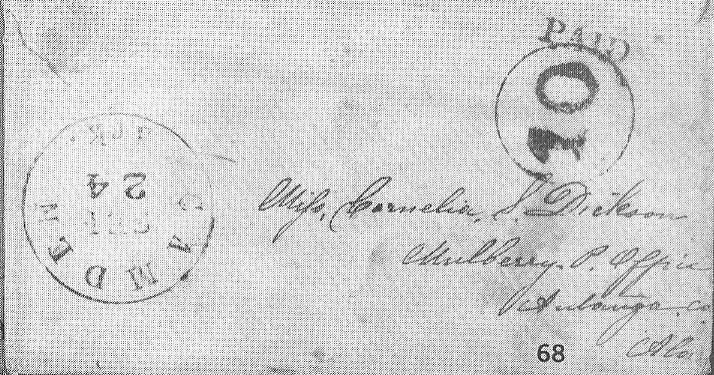 PAID
10
CAMDEN
24
Miſs, Cornelia, S. Dickson
Mulberry. P. Office
Autauga. Co
Ala
68